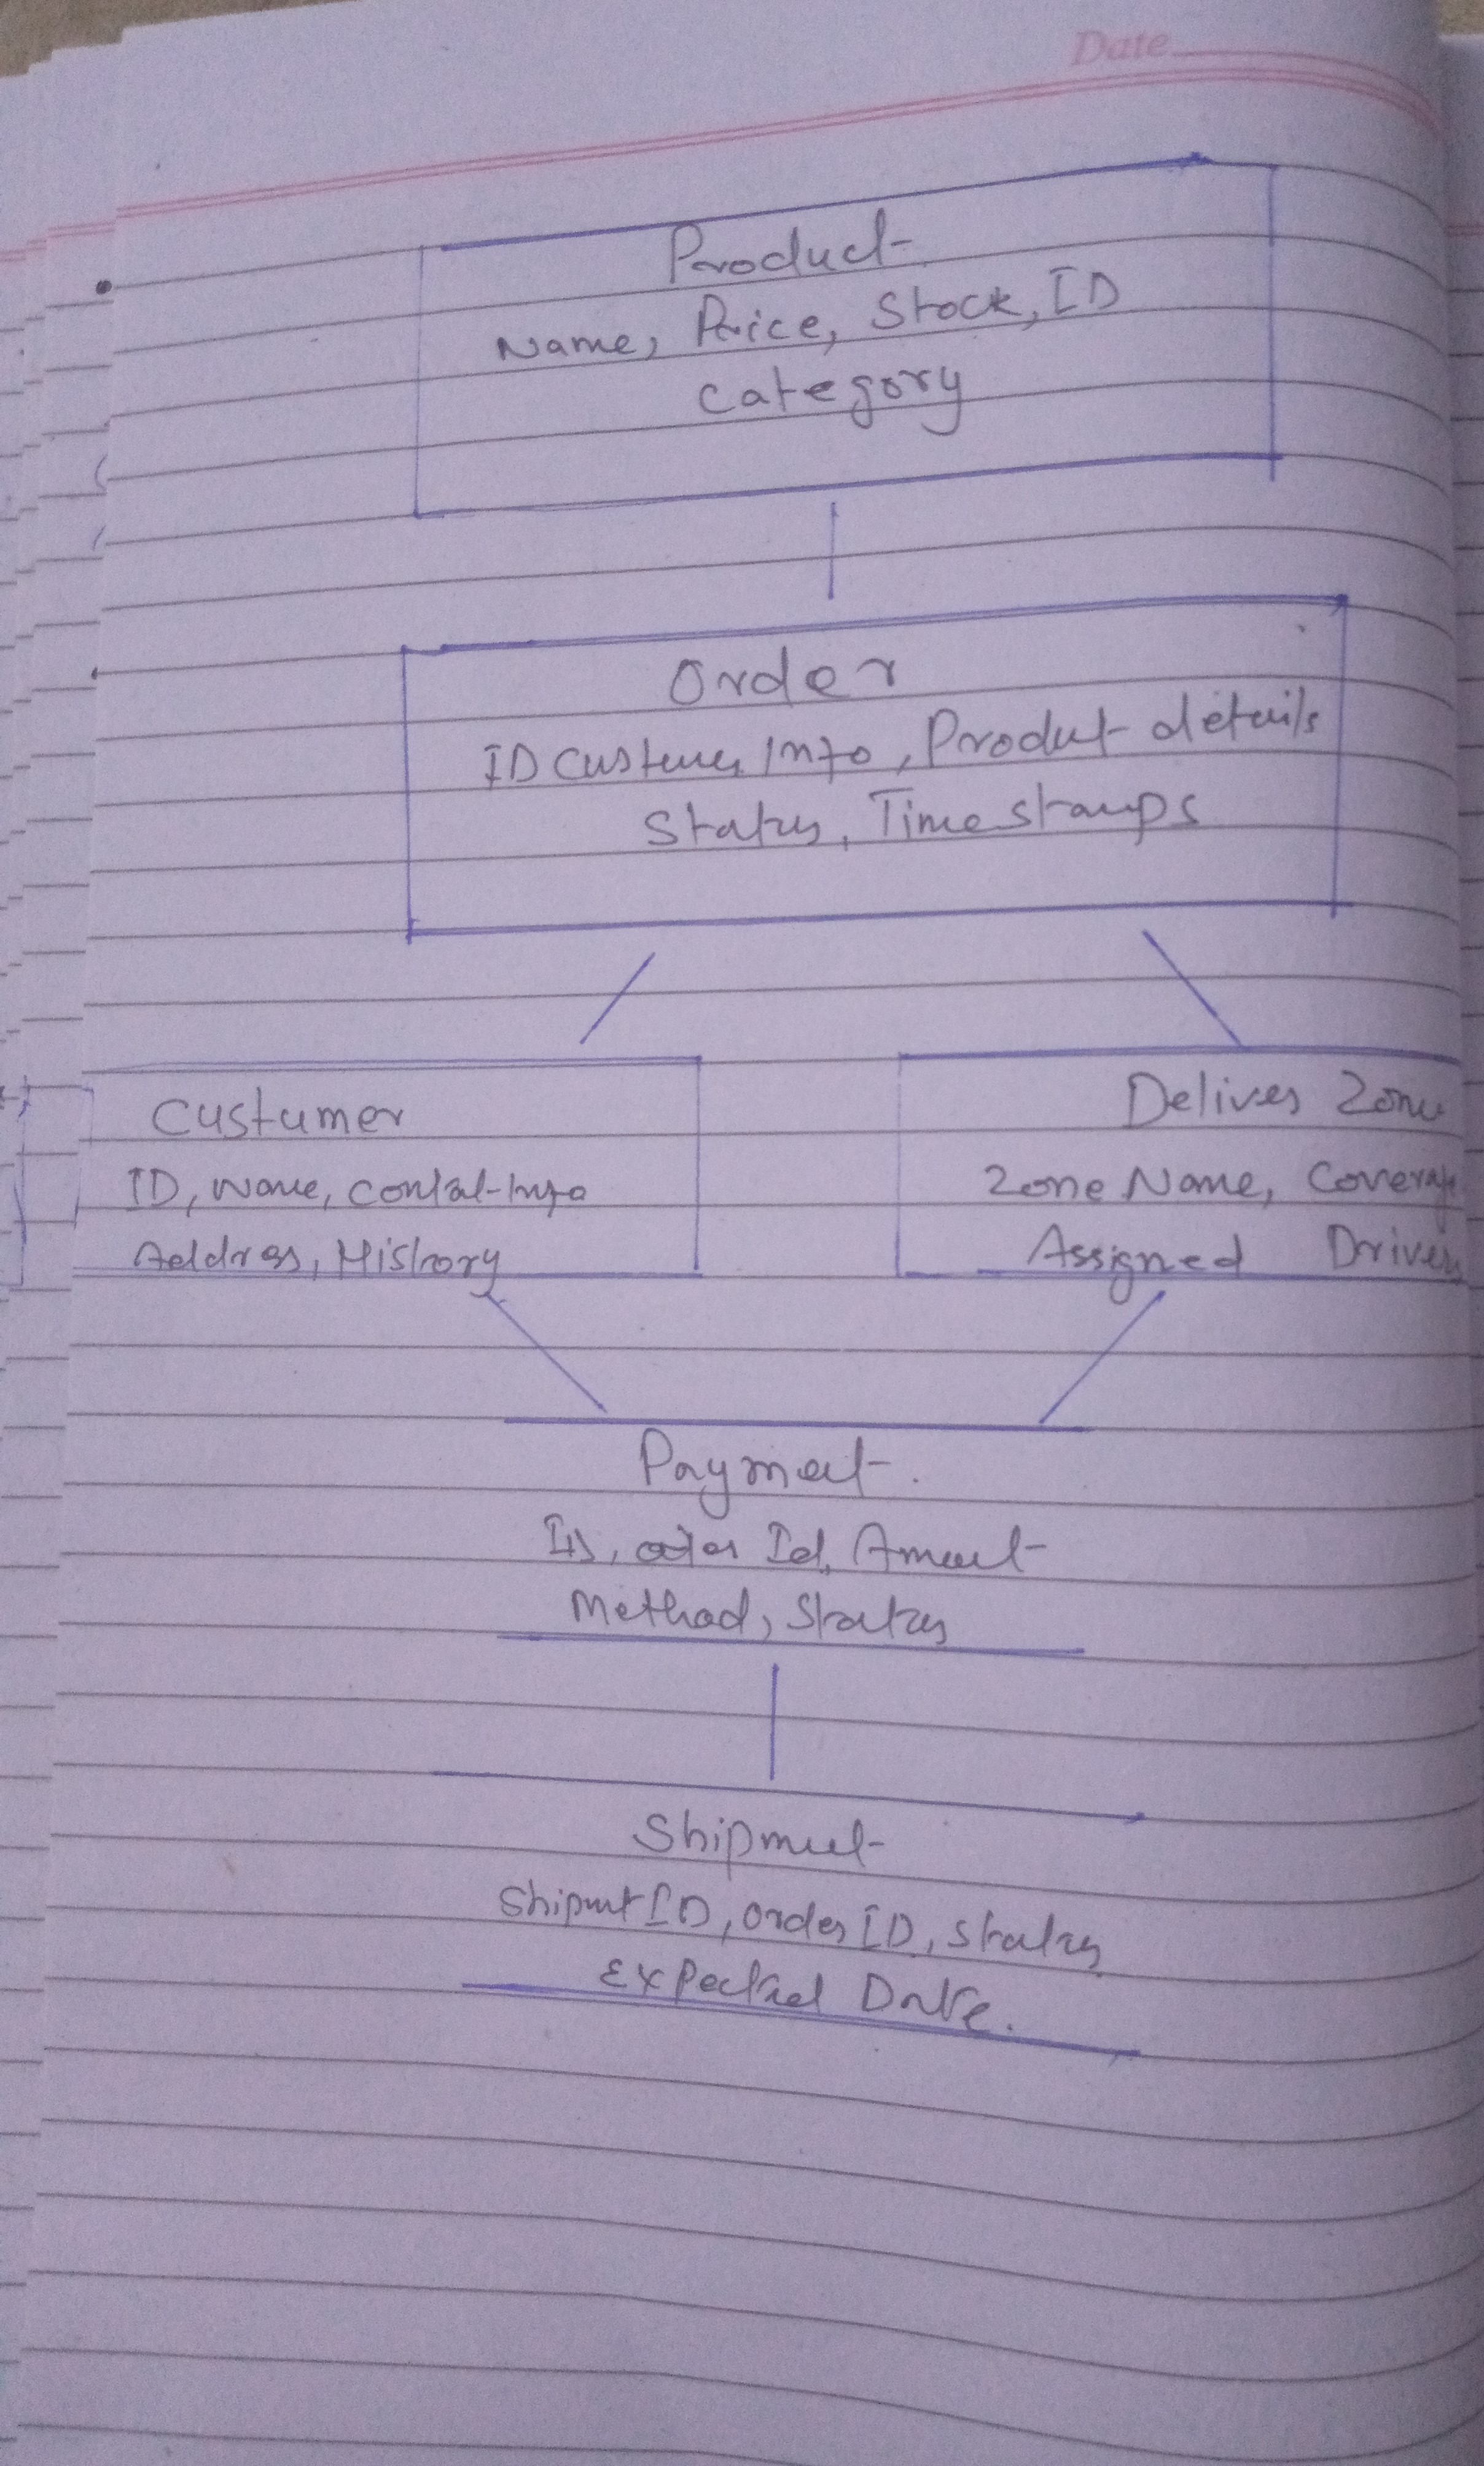 Date
Product
Name, Price, Stock, ID
Category
Order
ID Custumer Info, Produt details
Status, Time stamps
Custumer
ID, Name, Contat-Info
Address, History
Delivery Zone
Zone Name, Coverage
Assigned Driver
Payment
ID, order Id, Amount
Method, Status
Shipment
Shipmt ID, Order ID, Status
Expected Date.